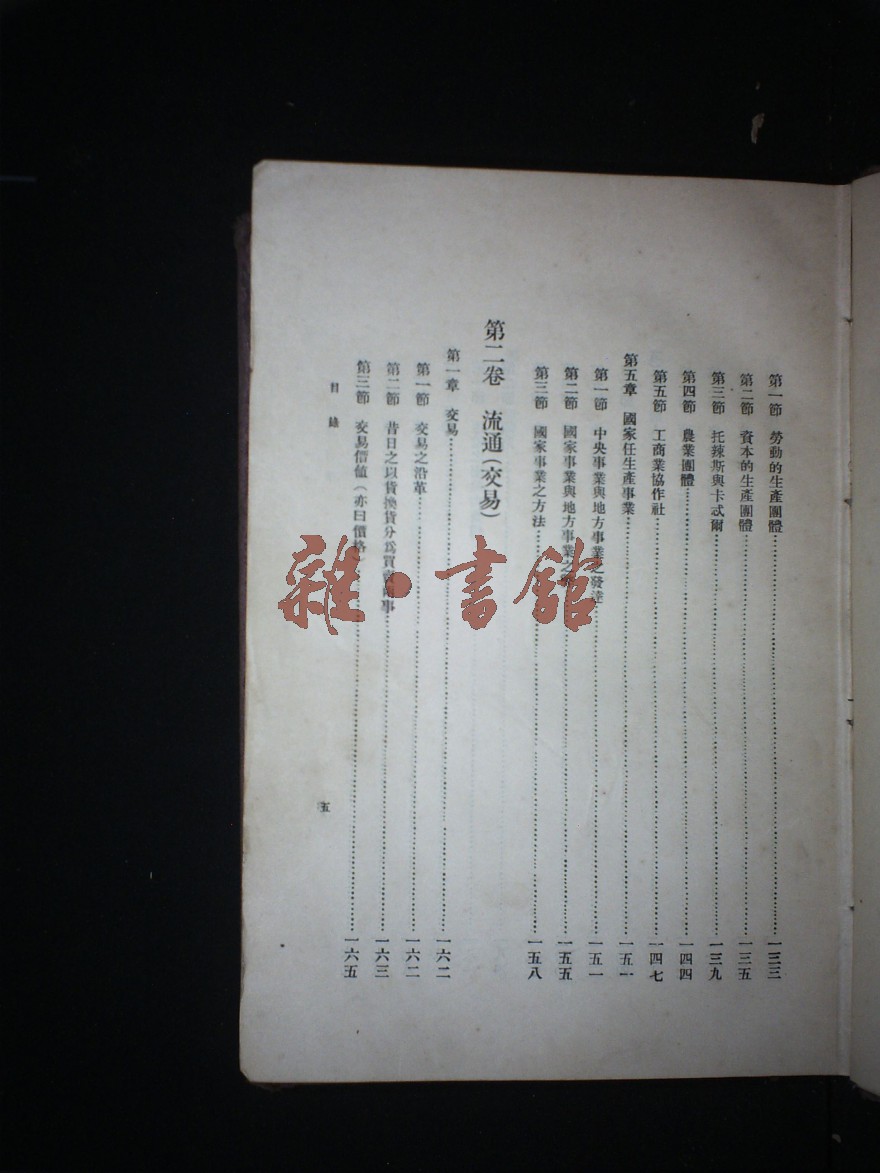 第一節 勞動的生產團體⋯⋯⋯⋯一三三
第二節 資本的生產團體⋯⋯⋯⋯一三五
第三節 托辣斯與卡忒爾⋯⋯⋯⋯一三九
第四節 農業團體⋯⋯⋯⋯一四四
第五節 工商業協作社⋯⋯⋯⋯一四七
第五章 國家任生產事業⋯⋯⋯⋯一五一
第一節 中央事業與地方事業之發達⋯⋯⋯⋯一五一
第二節 國家事業與地方事業之⋯⋯⋯⋯一五五
第三節 國家事業之方法⋯⋯⋯⋯一五八
第二卷 流通(交易)
第一章 交易⋯⋯⋯⋯一六二
第一節 交易之沿革⋯⋯⋯⋯一六二
第二節 昔日之以貨換貨分爲買賣兩事⋯⋯⋯⋯一六三
第三節 交易價値(亦曰價格)⋯⋯⋯⋯一六五
目錄
五
雜·書館